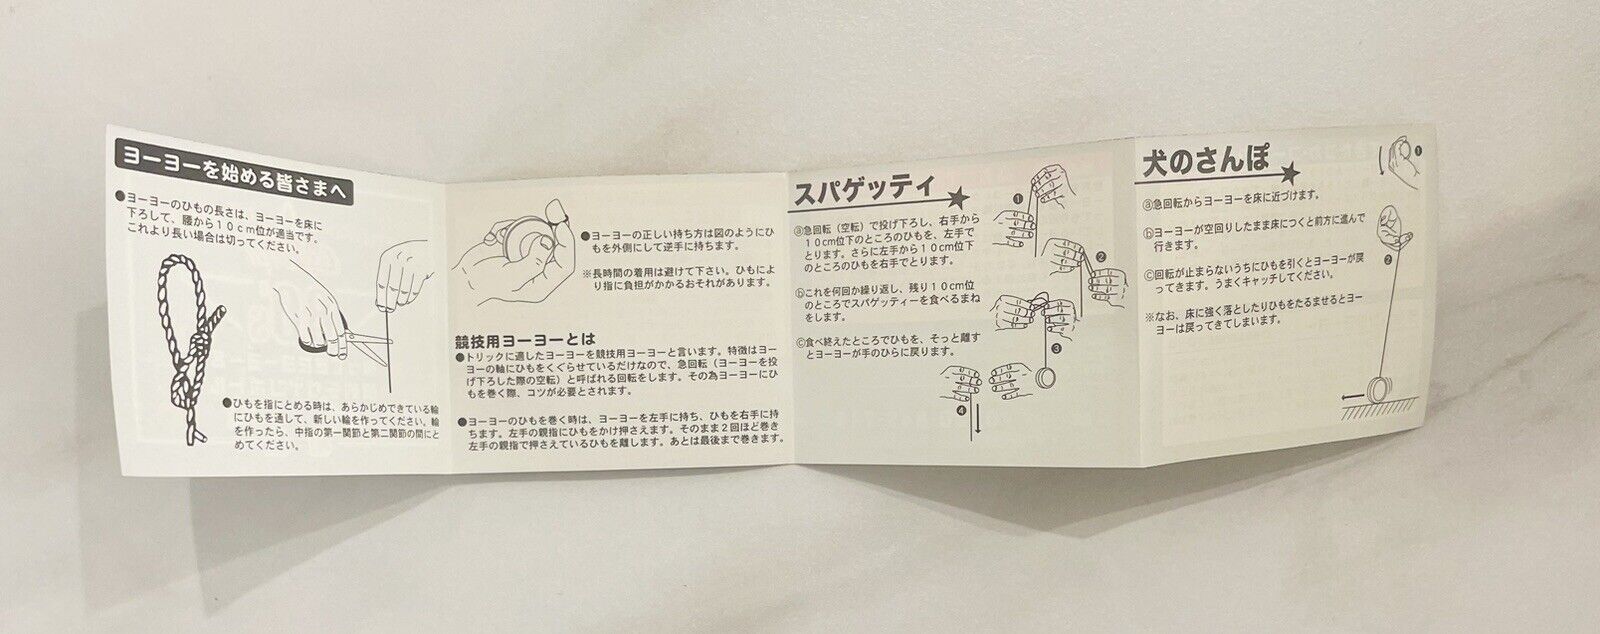 ヨーヨーを始める皆さまへ
●ヨーヨーのひもの長さは、ヨーヨーを床に
下ろして、腰から10cm位が適当です。
これより長い場合は切ってください。
●ひもを指にとめる時は、あらかじめできている輪
にひもを通して、新しい輪を作ってください。輪
を作ったら、中指の第一関節と第二関節の間にと
めてください。
●ヨーヨーの正しい持ち方は図のようにひ
もを外側にして逆手に持ちます。
※長時間の着用は避けて下さい。ひもによ
り指に負担がかかるおそれがあります。
競技用ヨーヨーとは
●トリックに適したヨーヨーを競技用ヨーヨーと言います。特徴はヨー
ヨーの軸にひもをくぐらせているだけなので、急回転（ヨーヨーを投
げ下ろした際の空転）と呼ばれる回転をします。その為ヨーヨーにひ
もを巻く際、コツが必要とされます。
●ヨーヨーのひもを巻く時は、ヨーヨーを左手に持ち、ひもを右手に持
ちます。左手の親指にひもをかけ押さえます。そのまま2回ほど巻き
左手の親指で押さえているひもを離します。あとは最後まで巻きます。
スパゲッティ★
ⓐ急回転（空転）で投げ下ろし、右手から
10cm位下のところのひもを、左手で
とります。さらに左手から10cm位下
のところのひもを右手でとります。
ⓑこれを何回か繰り返し、残り10cm位
のところでスパゲッティーを食べるまね
をします。
ⓒ食べ終えたところでひもを、そっと離す
とヨーヨーが手のひらに戻ります。
❶
❷
❸
❹
犬のさんぽ★
ⓐ急回転からヨーヨーを床に近づけます。
ⓑヨーヨーが空回りしたまま床につくと前方に進んで
行きます。
ⓒ回転が止まらないうちにひもを引くとヨーヨーが戻
ってきます。うまくキャッチしてください。
※なお、床に強く落としたりひもをたるませるとヨー
ヨーは戻ってきてしまいます。
❶
❷